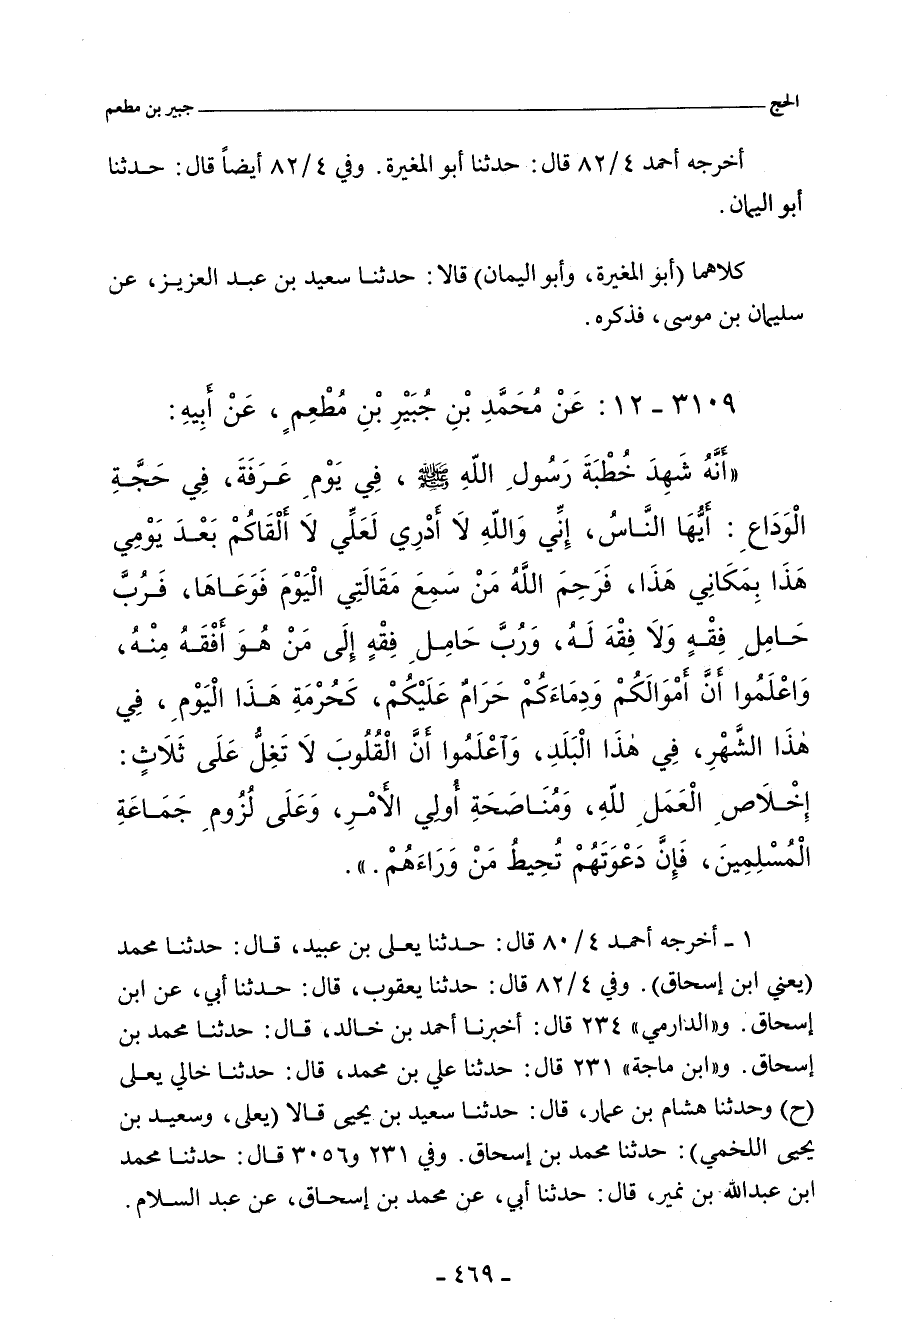 الحج ـــــــــــ جبير بن مطعم
أخرجه أحمد ٨٢/٤ قال: حدثنا أبو المغيرة. وفي ٨٢/٤ أيضاً قال: حدثنا
أبو اليمان.
كلاهما (أبو المغيرة، وأبو اليمان) قالا: حدثنا سعيد بن عبد العزيز، عن
سليمان بن موسى، فذكره.
٣١٠٩ - ١٢: عَنْ مُحَمَّدِ بْنِ جُبَيْرِ بْنِ مُطْعِمٍ، عَنْ أَبِيهِ:
«أَنَّهُ شَهِدَ خُطْبَةَ رَسُولِ اللَّهِ ﷺ، فِي يَوْمِ عَرَفَةَ، فِي حَجَّةِ
الْوَدَاعِ: أَيُّهَا النَّاسُ، إِنِّي وَاللَّهِ لَا أَدْرِي لَعَلِّي لَا أَلْقَاكُمْ بَعْدَ يَوْمِي
هَذَا بِمَكَانِي هَذَا، فَرَحِمَ اللَّهُ مَنْ سَمِعَ مَقَالَتِي الْيَوْمَ فَوَعَاهَا، فَرُبَّ
حَامِلِ فِقْهٍ وَلَا فِقْهَ لَهُ، وَرُبَّ حَامِلِ فِقْهٍ إِلَى مَنْ هُوَ أَفْقَهُ مِنْهُ،
وَاعْلَمُوا أَنَّ أَمْوَالَكُمْ وَدِمَاءَكُمْ حَرَامٌ عَلَيْكُمْ، كَحُرْمَةِ هَذَا الْيَوْمِ، فِي
هٰذَا الشَّهْرِ، فِي هٰذَا الْبَلَدِ، وَاعْلَمُوا أَنَّ الْقُلُوبَ لَا تَغِلُّ عَلَى ثَلَاثٍ:
إِخْلَاصِ الْعَمَلِ للَّهِ، وَمُنَاصَحَةِ أُولِي الأَمْرِ، وَعَلَى لُزُومِ جَمَاعَةِ
الْمُسْلِمِينَ، فَإِنَّ دَعْوَتَهُمْ تُحِيطُ مَنْ وَرَاءَهُمْ.».
١ - أخرجه أحمد ٨٠/٤ قال: حدثنا يعلى بن عبيد، قال: حدثنا محمد
(يعني ابن إسحاق). وفي ٨٢/٤ قال: حدثنا يعقوب، قال: حدثنا أبي، عن ابن
إسحاق. و«الدارمي» ٢٣٤ قال: أخبرنا أحمد بن خالد، قال: حدثنا محمد بن
إسحاق. و«ابن ماجة» ٢٣١ قال: حدثنا علي بن محمد، قال: حدثنا خالي يعلى
(ح) وحدثنا هشام بن عمار، قال: حدثنا سعيد بن يحيى قالا (يعلى، وسعيد بن
يحيى اللخمي): حدثنا محمد بن إسحاق. وفي ٢٣١ و٣٠٥٦ قال: حدثنا محمد
ابن عبدالله بن نمير، قال: حدثنا أبي، عن محمد بن إسحاق، عن عبد السلام.
- ٤٦٩ -